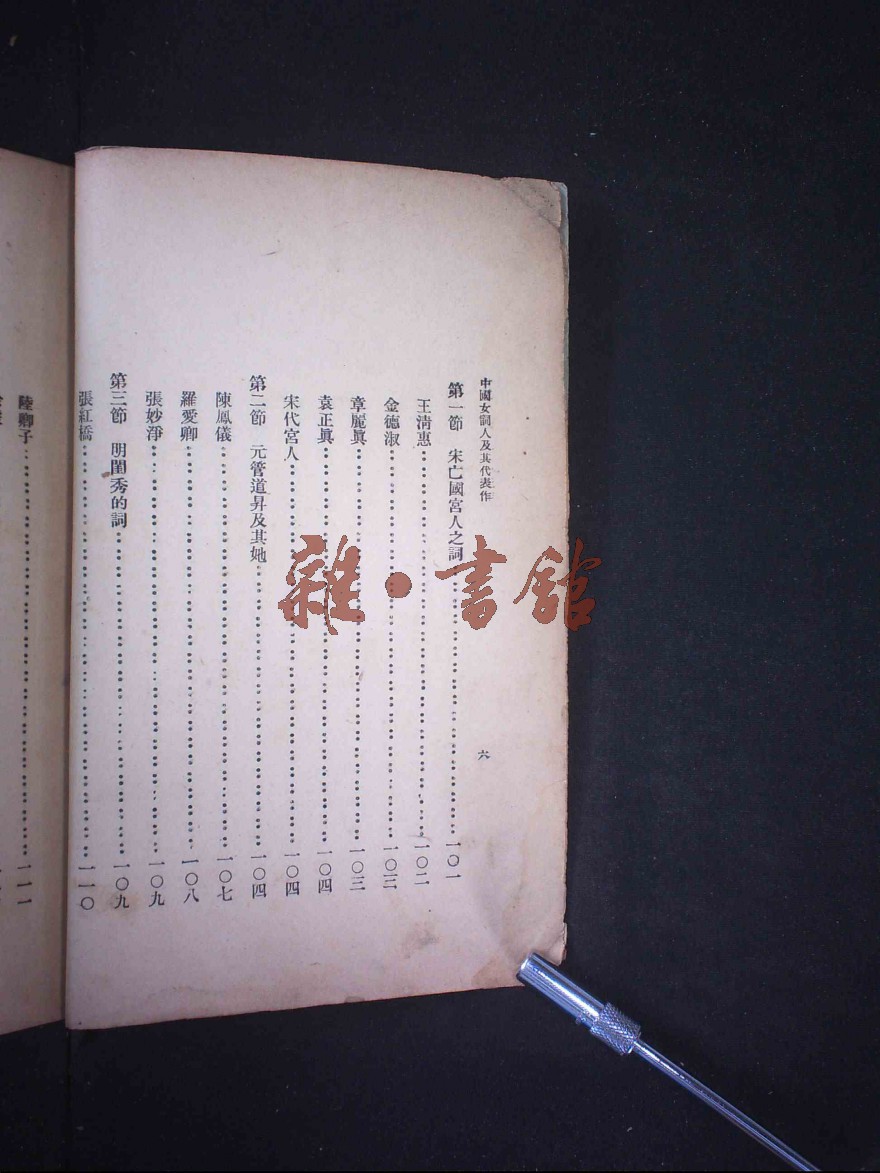 中國女詞人及其代表作
六
第一節 宋亡國宮人之詞………一〇一
王清惠………一〇二
金德淑………一〇三
章麗眞………一〇三
袁正眞………一〇四
宋代宮人………一〇四
第二節 元管道昇及其她………一〇四
陳鳳儀………一〇七
羅愛卿………一〇八
張妙淨………一〇九
第三節 明閨秀的詞………一〇九
張紅橋………一一〇
陸卿子………一一一
雜·書館